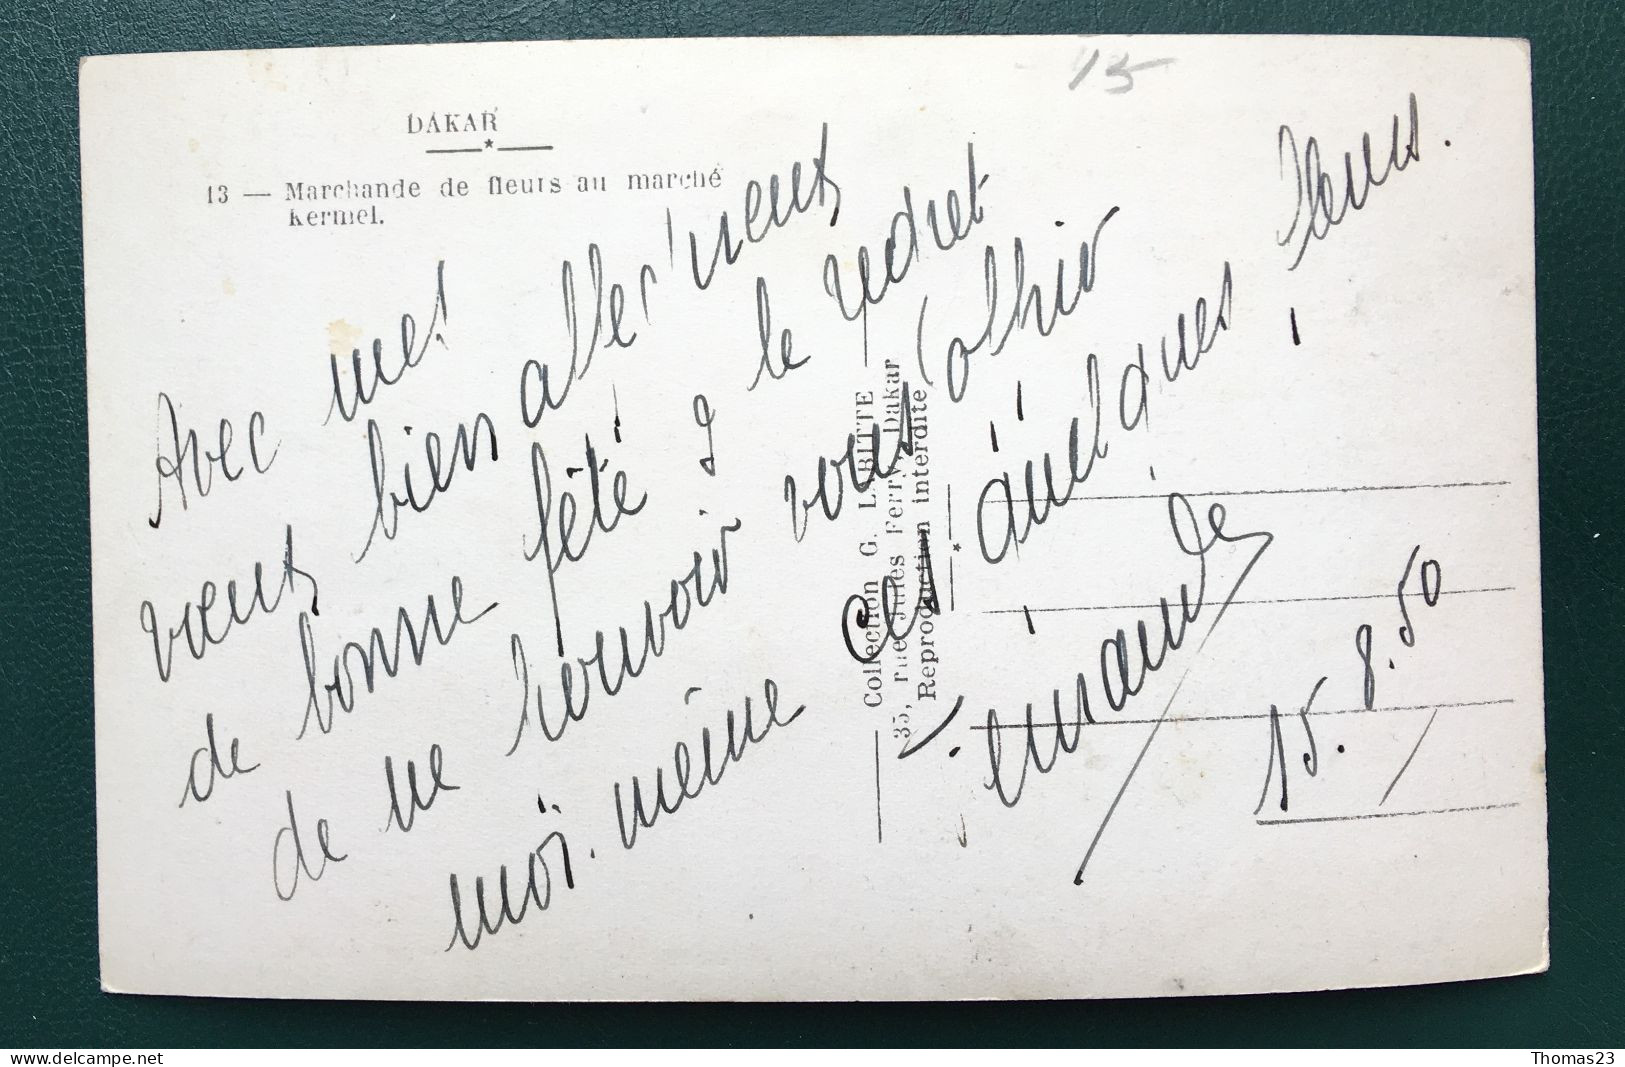 15
DAKAR
13 — Marchande de fleurs au marché
Kermel.
Avec mes
vœux bien affectueux
de bonne fête & le regret
de ne pouvoir vous offrir
moi-même ces quelques fleurs.
15.8.50
Collection G. LABITTE
35, rue Jules Ferry, Dakar
Reproduction interdite
Thomas23